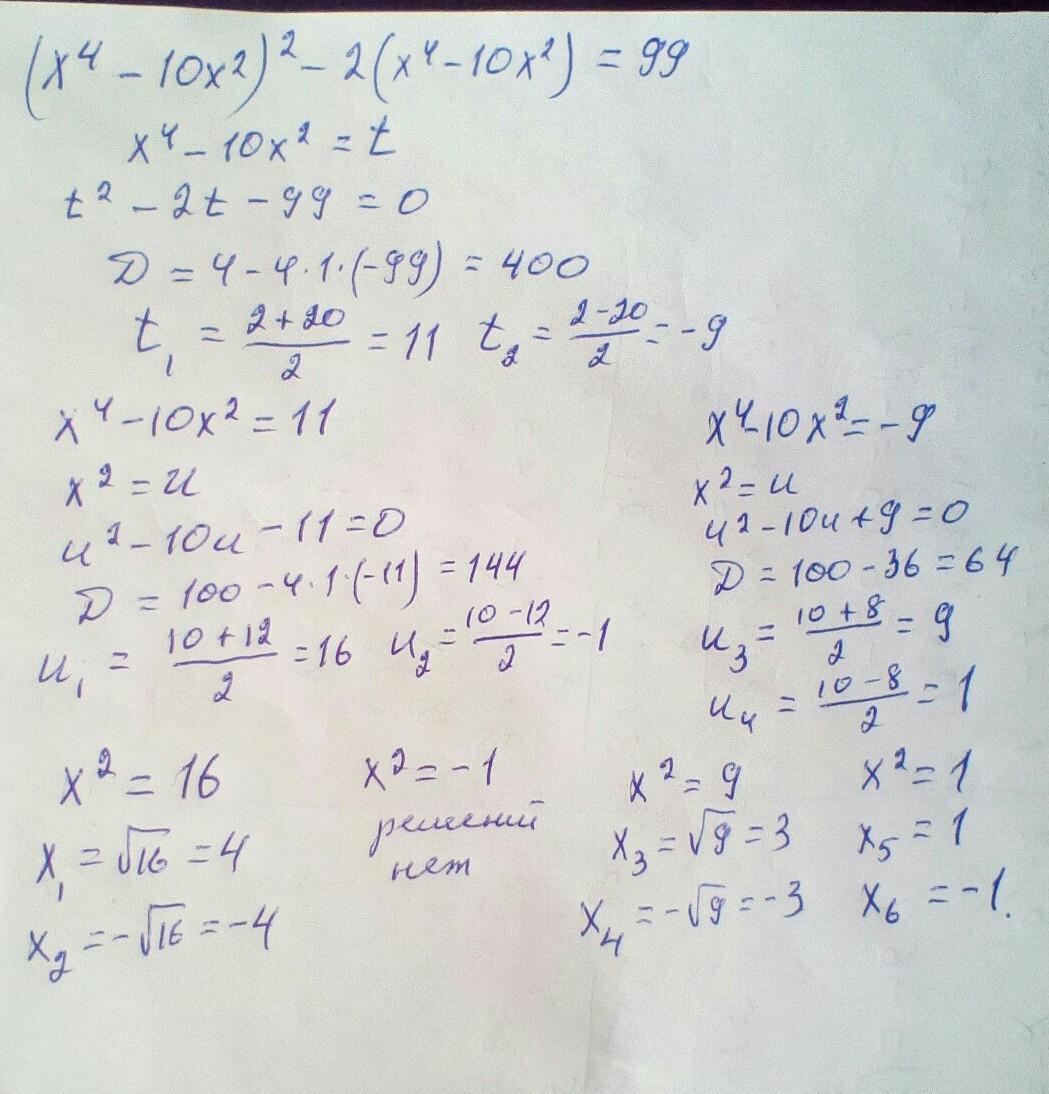 (x⁴ - 10x²)² - 2(x⁴ - 10x²) = 99
x⁴ - 10x² = t
t² - 2t - 99 = 0
D = 4 - 4·1·(-99) = 400
t₁ = (2+20)/2 = 11 t₂ = (2-20)/2 = -9
x⁴ - 10x² = 11
x² = u
u² - 10u - 11 = 0
D = 100 - 4·1·(-11) = 144
u₁ = (10+12)/2 = 16 u₂ = (10-12)/2 = -1
x⁴ - 10x² = -9
x² = u
u² - 10u + 9 = 0
D = 100 - 36 = 64
u₃ = (10+8)/2 = 9
u₄ = (10-8)/2 = 1
x² = 16
x₁ = √16 = 4
x₂ = -√16 = -4
x² = -1
решений
нет
x² = 9
x₃ = √9 = 3
x₄ = -√9 = -3
x² = 1
x₅ = 1
x₆ = -1.